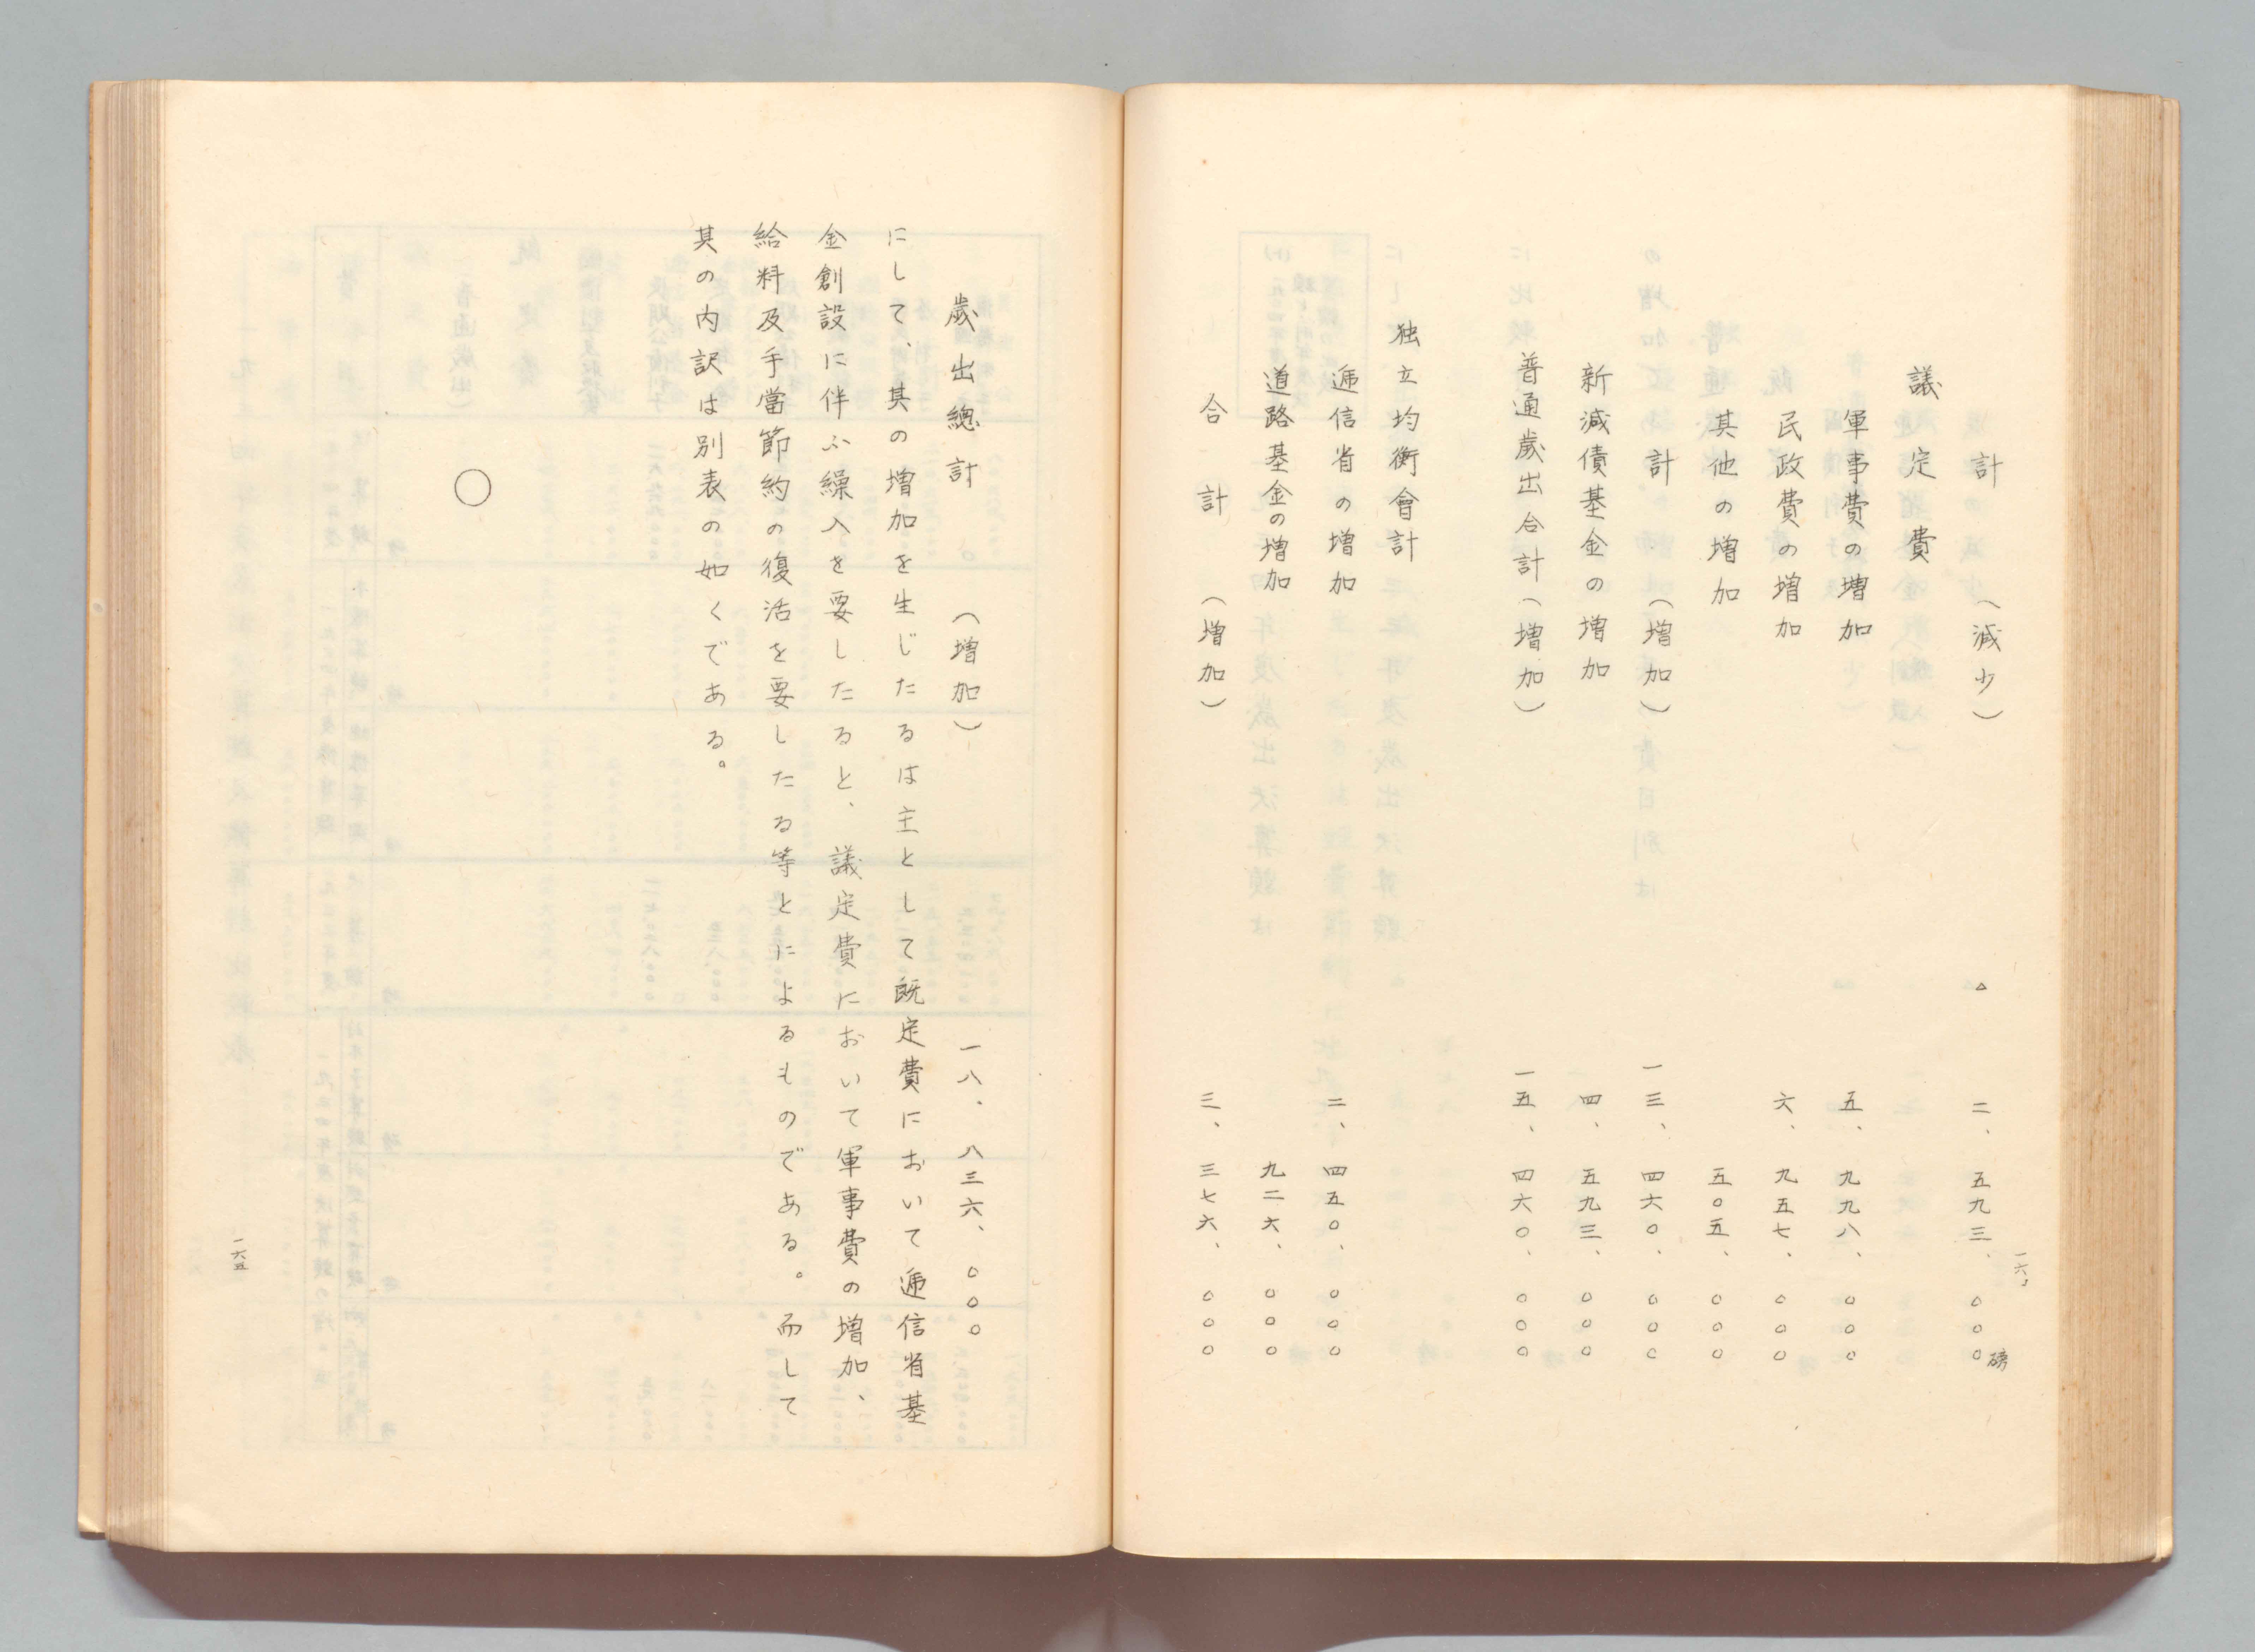 計　（減少）　△　二、五九三、〇〇〇磅
議定費
軍事費の増加　五、九九八、〇〇〇
民政費の増加　六、九五七、〇〇〇
其他の増加　五〇五、〇〇〇
計　（増加）　一三、四六〇、〇〇〇
新減債基金の増加　四、五九三、〇〇〇
普通歳出合計（増加）　一五、四六〇、〇〇〇
独立均衡會計
逓信省の増加　二、四五〇、〇〇〇
道路基金の増加　九二六、〇〇〇
合計　（増加）　三、三七六、〇〇〇
歳出總計　（増加）　一八、八三六、〇〇〇
にして、其の増加を生じたるは主として既定費において逓信省基
金創設に伴ふ繰入を要したると、議定費において軍事費の増加、
給料及手當節約の復活を要したる等とによるものである。而して
其の内訳は別表の如くである。
〇
一六五